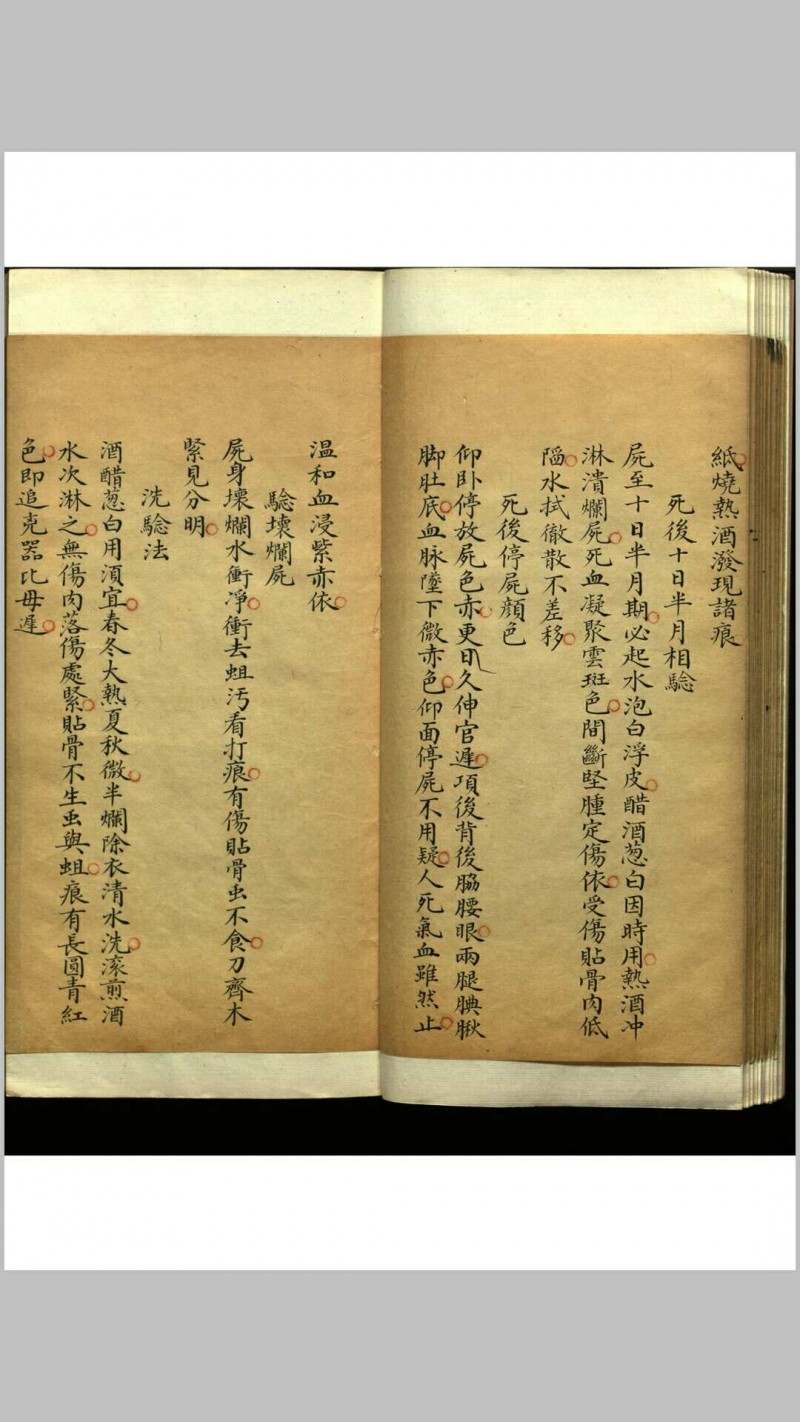 紙燒熱酒潑現諸痕
死後十日半月相驗
屍至十日半月期必起水泡白浮皮醋酒葱白因時用熱酒冲
淋潰爛屍死血凝聚雲斑色間斷堅腫定傷依受傷貼骨肉低
隔水拭徹散不差移
死後停屍顏色
仰卧停放屍色赤更日久伸官遲項後背後脇腰眼兩腿腆腘
脚肚底血脉墬下微赤色仰面停屍不用疑人死氣血雖然止
温和血浸紫亦依
驗壞爛屍
屍身壞爛水衝凈衝去蛆汚看打痕有傷貼骨虫不食刀齊木
緊見分明
洗驗法
酒醋葱白用湏宜春冬大熱夏秋微半爛除衣清水洗滚煎酒
水次淋之無傷肉落傷處緊貼骨不生虫與蛆痕有長圓青紅
色即追兇器比毋遲